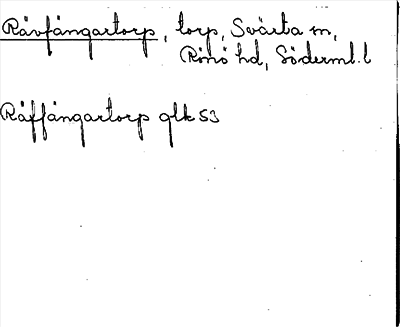 Rävfångartorp, torp, Svärta sn,
Rönö hd, Söderml. l
Räffångartorp glk 53